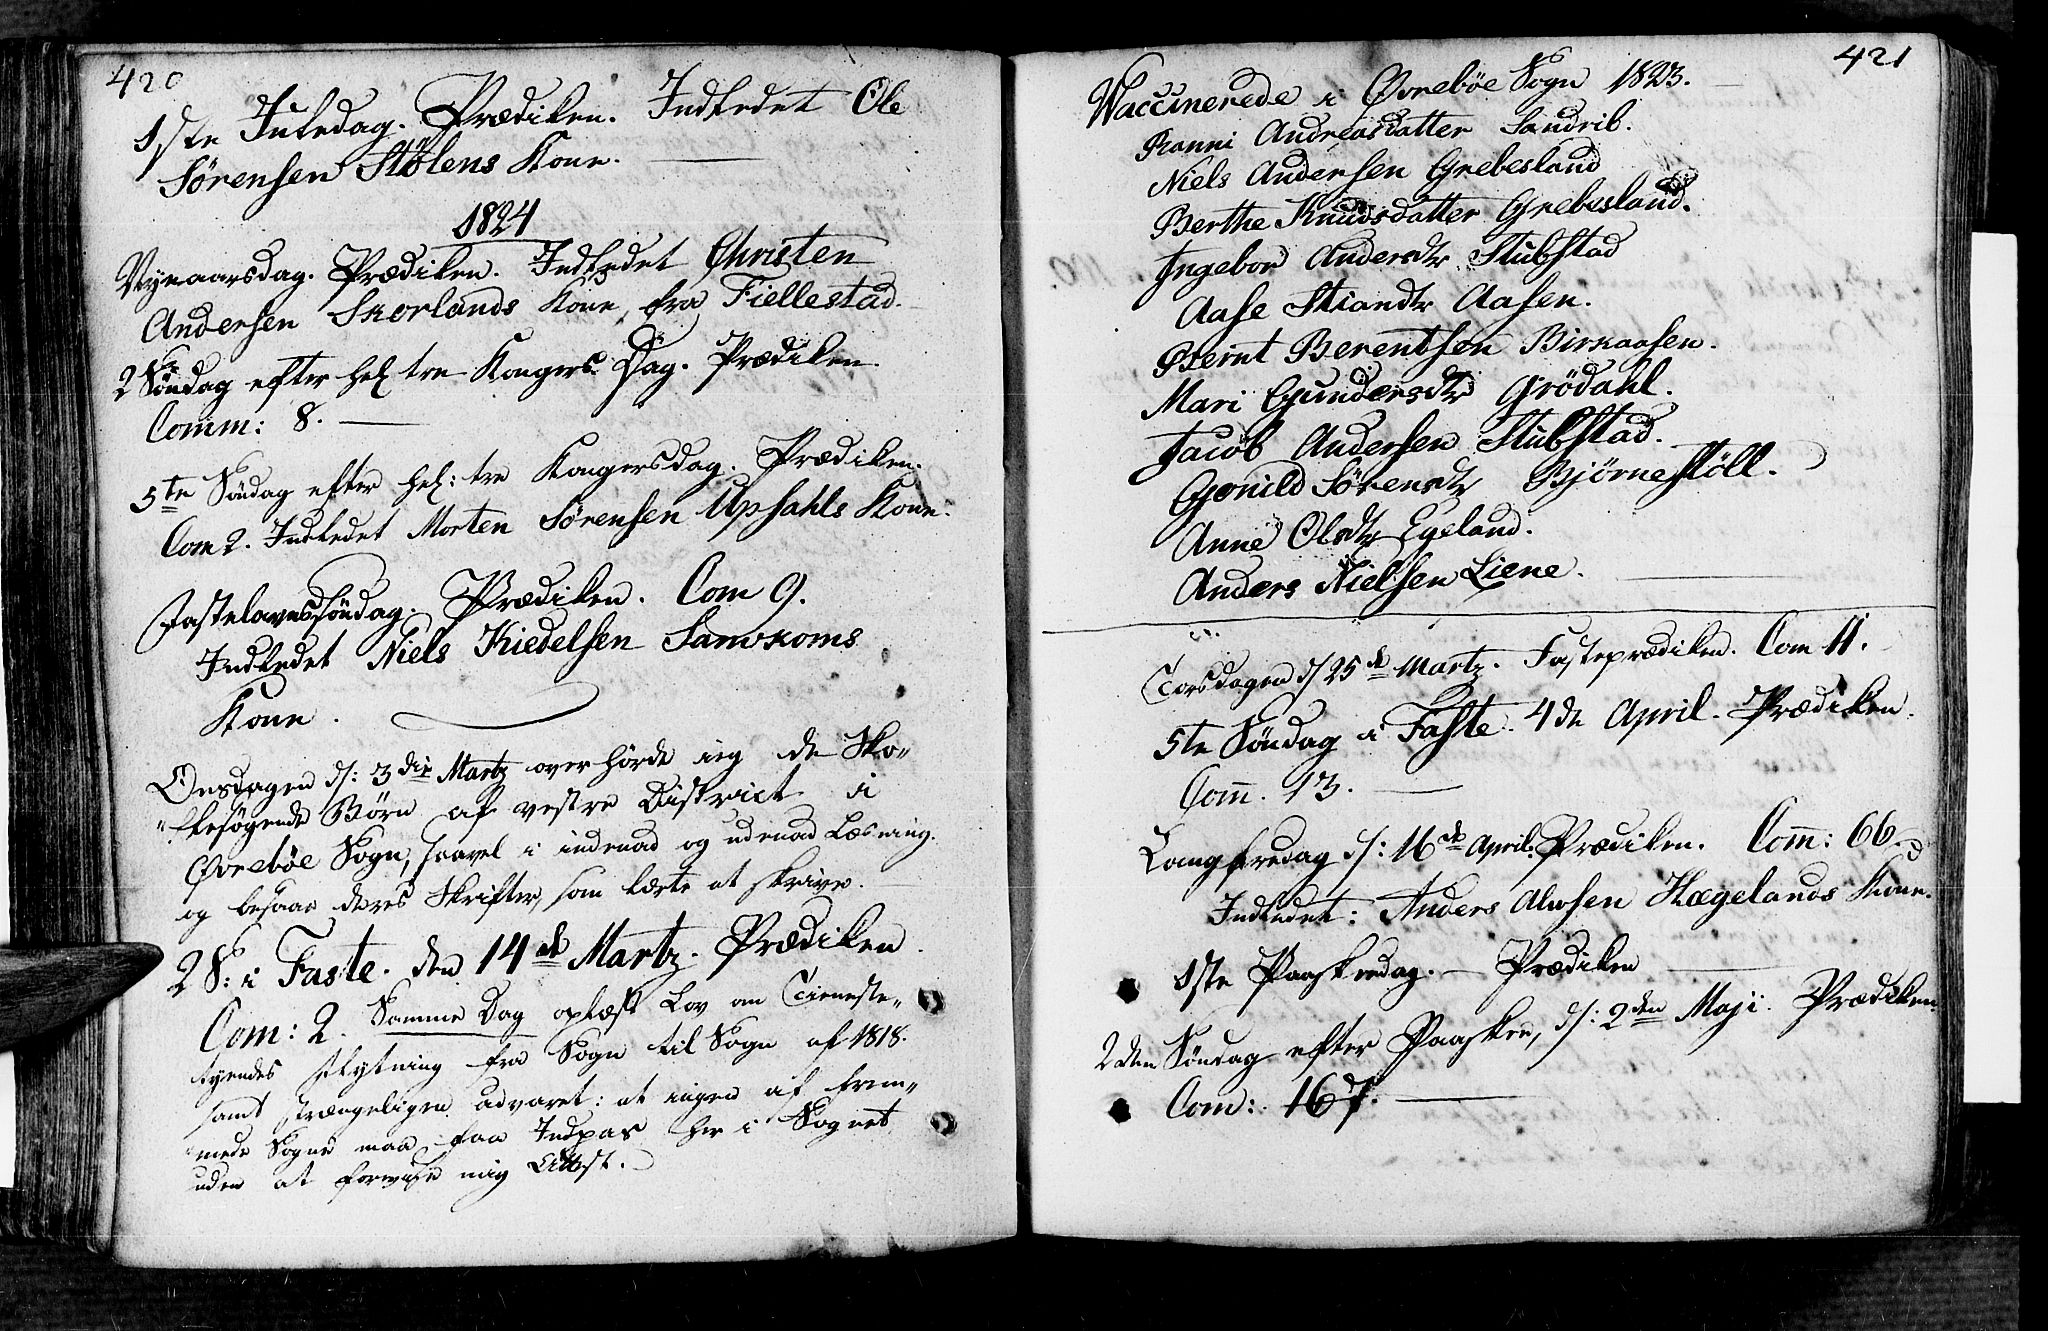 420
1ste Juledag. Prædiken. Indledet Ole
Sørensen Stølens Kone.
1824
Nyeaarsdag. Prædiken. Indledet Christen
Andersen Skorlands Kone, fra Fiellestad.
2 Søndag efter hel tre Kongers Dag. Prædiken.
Comm: 8.
5te Søndag efter hel: tre Kongersdag. Prædiken.
Com 2. Indledet Morten Sørensen Upsahls Kone.
Fastelavnssöndag. Prædiken. Com 9.
Indledet Niels Kiedelsen Samkoms
Kone.
Onsdagen d: 3die Martz overhörde jeg de Sko„
„lesøgende Börn af vestre District i
Øvrebøe Sogn, saavel i indenad og udenad Læsning.
og besaae deres Skrifter, som lærte at skrive.
2 S: i Faste. den 14de Martz. Prædiken.
Com: 2. Samme Dag oplæst Lov om Tieneste„
tyendes flytning fra Sogn til Sogn af 1818.
samt strængeligen advaret: at ingen af frem„
mede Sogne maa faa Indpas her i Sognet
uden at forevise mig Attest.
421
Waccinerede i Øvrebøe Sogn 1823.
Ranni Andreasdatter Sandrib.
Niels Andersen Grebesland
Berthe Knudsdatter Grebesland.
Ingebor Andersdtr Stubstad
Aase Stiandtr Aasen.
Bernt Berentsen Birkaasen.
Mari Gundersdtr Grödahl.
Jacob Andersen Stubstad.
Gonild Sørensdtr Bjørnestöll.
Anne Olsdtr Egeland.
Anders Nielsen Liene.
Torsdagen d 25de Martz. Fasteprædiken. Com 11.
5te Søndag i Faste. 4de April. Prædiken.
Com̄. 13.
Langfredag d: 16de April. Prædiken. Com̄: 66.
Indledet: Anders Alwsen Hægelands Kone.
1ste Paaskedag. — Prædiken
2den Söndag efter Paaske, d: 2den Maji. Prædiken.
Com: 167.